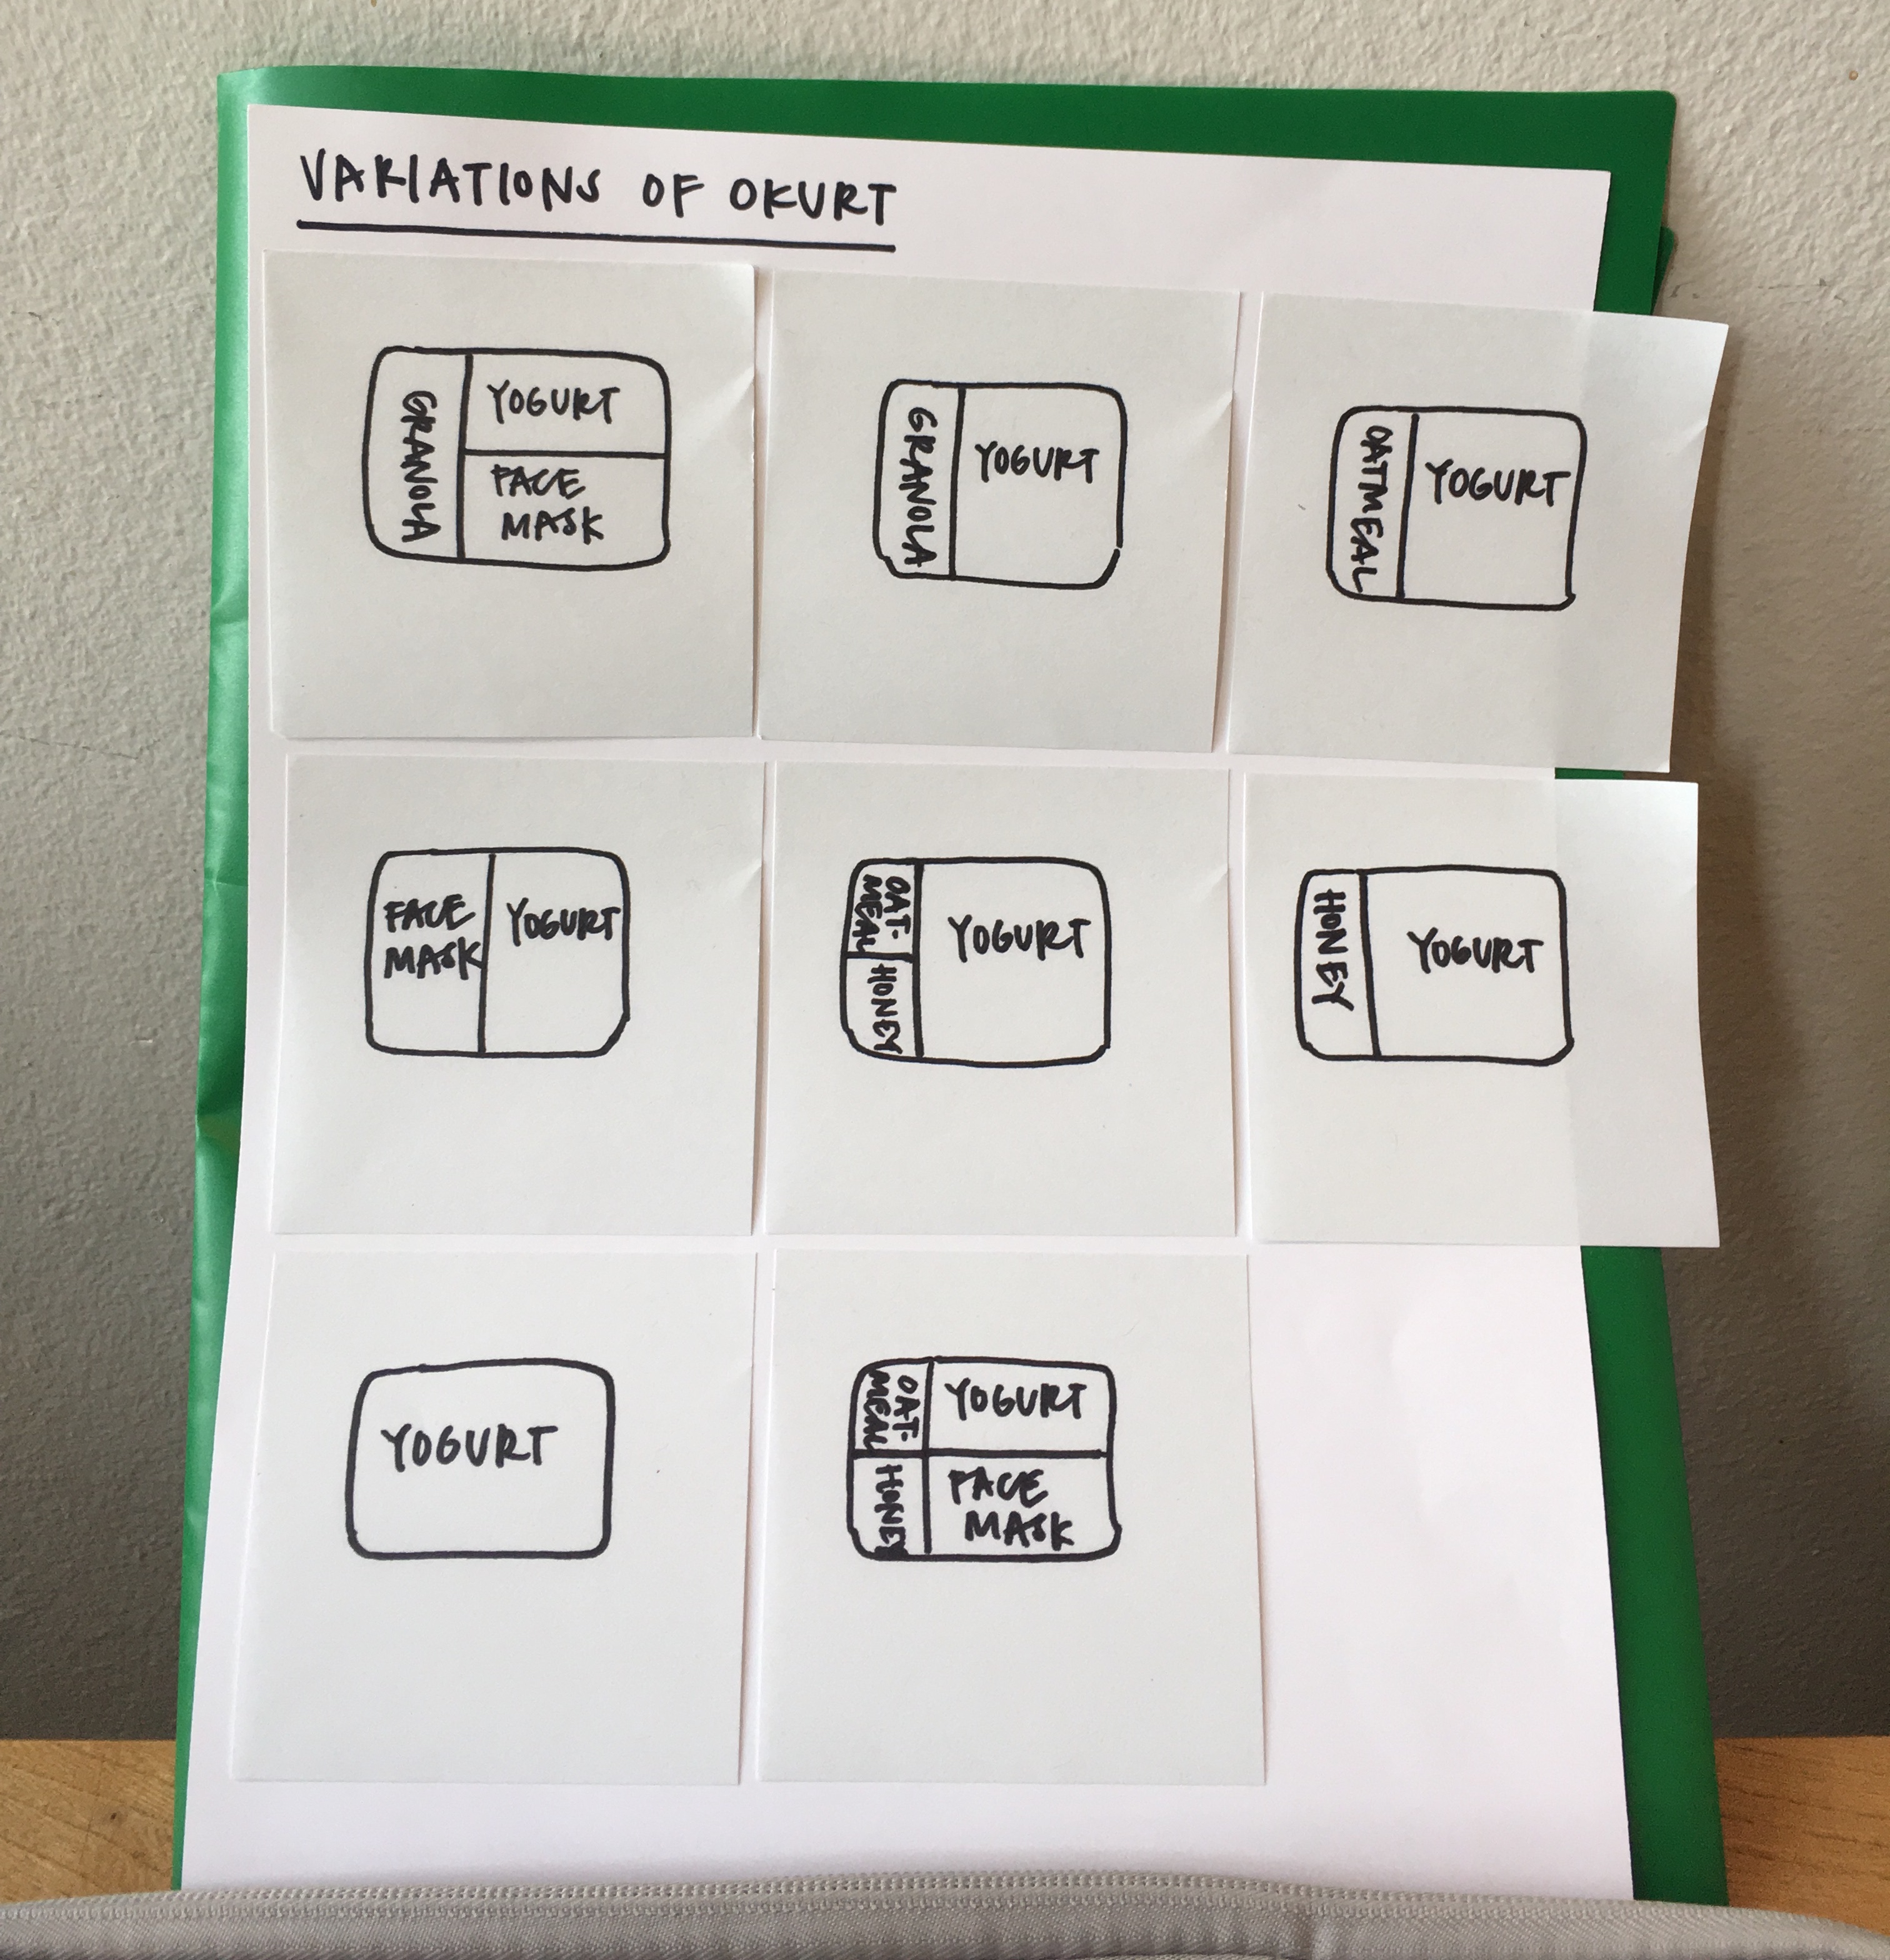 VARIATIONS OF OKURT
GRANOLA
YOGURT
FACE
MASK
GRANOLA
YOGURT
OATMEAL
YOGURT
FACE
MASK
YOGURT
OAT-
MEAL
HONEY
YOGURT
HONEY
YOGURT
YOGURT
OAT-
MEAL
HONEY
YOGURT
FACE
MASK